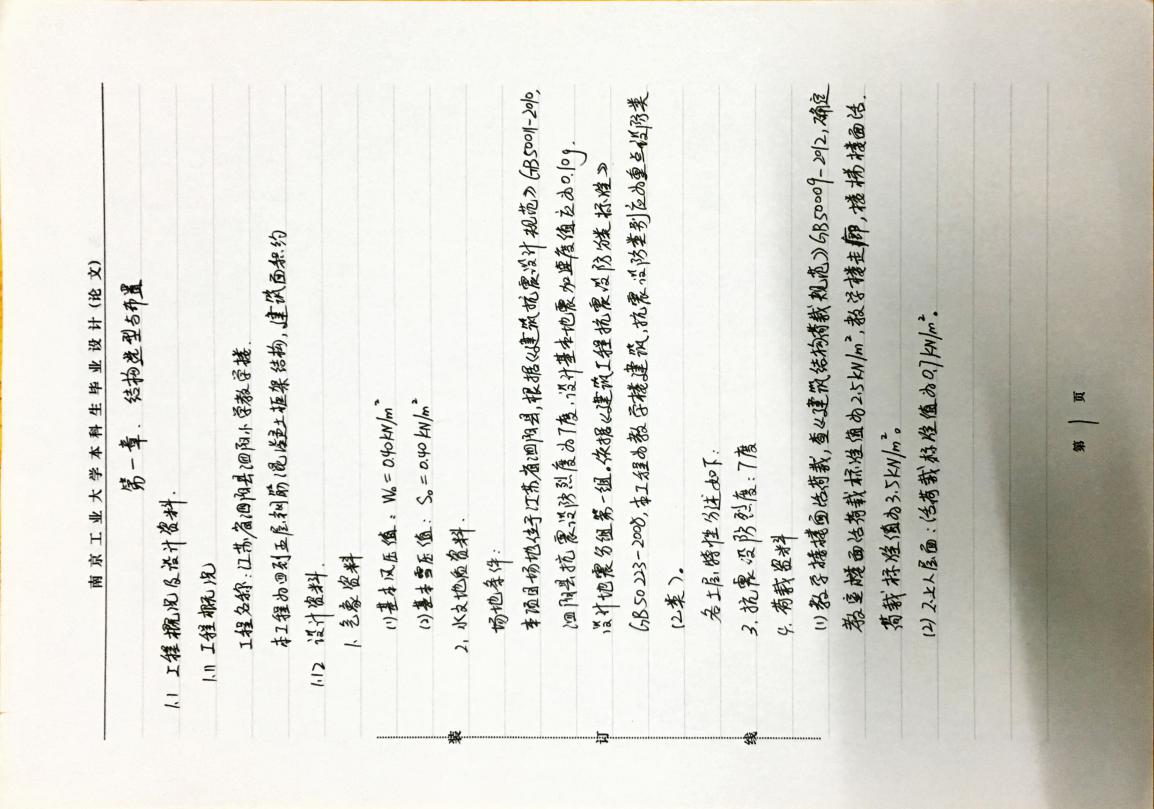 南京工业大学本科生毕业设计(论文)
第一章、结构选型与布置
1.1 工程概况及设计资料.
1.11 工程概况
工程名称:江苏省泗阳县泗阳小学教学楼.
本工程为四到五层钢筋混凝土框架结构,建筑面积约
1.12 设计资料.
1、气象资料
(1)基本风压值:W₀=0.40KN/m²
(2)基本雪压值:S₀=0.40KN/m²
2、水文地质资料.
场地条件:
本项目场地位于江苏省泗阳县,根据《建筑抗震设计规范》GB50011-2010,
泗阳县抗震设防烈度为7度,设计基本地震加速度值应为0.10g.
设计地震分组第一组。依据《建筑工程抗震设防分类标准》
GB50223-2008,本工程为教学楼建筑,抗震设防类别应为重点设防类
(乙类)。
各土层特性分述如下:
3、抗震设防烈度:7度
4、荷载资料
(1)教学楼楼面活荷载,查《建筑结构荷载规范》GB50009-2012,确定
教室楼面活荷载标准值为2.5KN/m²,教学楼走廊,楼梯楼面活
荷载标准值为3.5KN/m²。
(2)不上人屋面:活荷载标准值为0.7KN/m²。
装
订
线
第 1 页